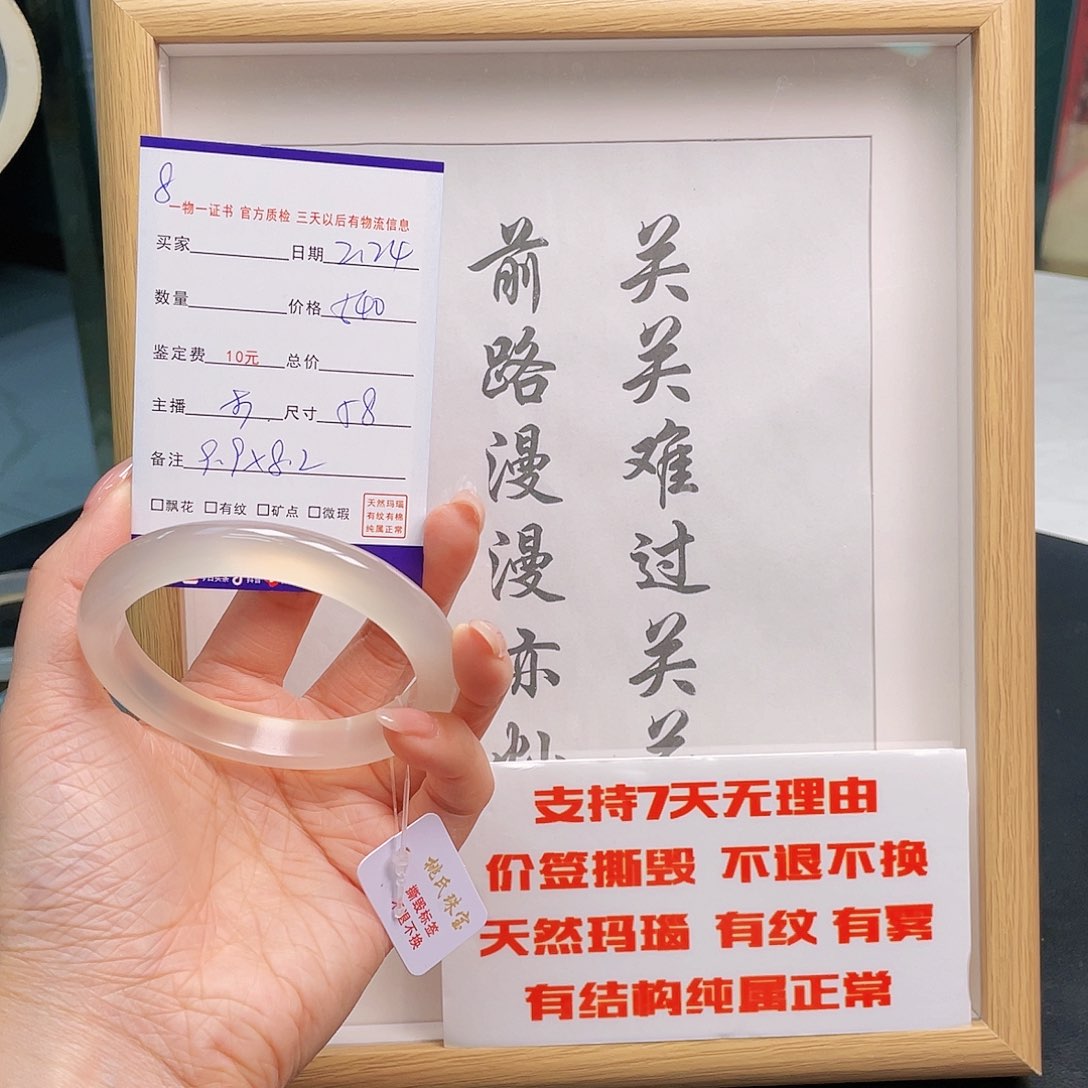 8
一物一证书 官方质检 三天以后有物流信息
买家 日期 2.24
数量 价格 540
鉴定费 10元 总价
主播 尺寸 58
备注 9.9×8.2
□飘花 □有纹 □矿点 □微瑕
天然玛瑙
有纹有棉
纯属正常
关关难过关关
前路漫漫亦
姚氏珠宝
撕毁标签
退不换
支持7天无理由
价签撕毁 不退不换
天然玛瑙 有纹 有雾
有结构纯属正常